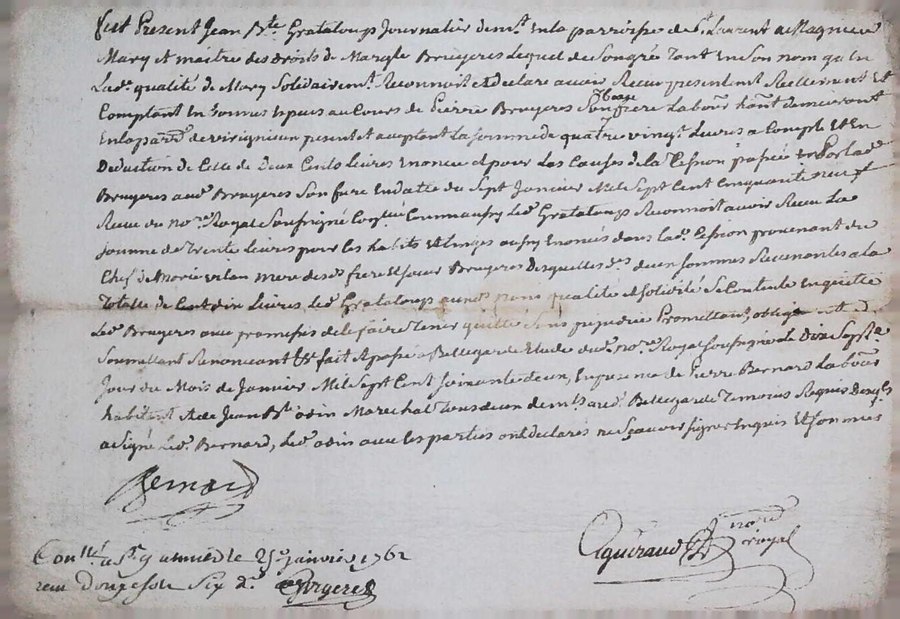 fut Present Jean Bte Grataloup Journalier demt En la parroisse de St Laurent
Mary et maitre des droits de Bruyeres Lequel de Son gré Tant En Son nom qu'en
Lade qualité de Mary Solidairemt Reconnoit et declare avoir Receu presentemt Reellement Et
Comptant En Sommes au Cours de Pierre Bruyeres Son frere Labour habt demeurant
En la parse de virignieu pesent et acceptant La Somme de quatre vingt Livres a Compte Et En
Deduction de Celle de Deux Cents Livres Enoncé et pour Les Causes de la Cession passée par lade
Bruyeres aud Bruyeres Son frere En datte du Sept Janvier Mil Sept Cent Cinquante neuf
Receu du nore Royal Soussigné Comme aussy led Grataloup Reconnoit avoir Receu La
somme de Trente Livres pour les habits Et Linges aussy Enoncés dans lade Cession provenant du
Chef de Marie mere desds frere Et Soeur Bruyeres Desquelles des deux Sommes Revenantes a la
Totalle de Cent dix Livres led Grataloup qualité Solidité Se Contente En quitte
Led Bruyeres avec promesses de le faire Tenir quitte Sans prejudice Promettant, oblige
Soumettant Renonceant &c fait & passé a Bellegarde Etude dud nore Royal Soussigné Le Dix Septe
Jour du Mois de Janvier Mil Sept Cent Soixante deux, En presence de Pierre Bernard Labour
habitant et de Jean Bte odin Marechal Tous deux demts aud Bellegarde Temoins Requis Desquels
a Signé Led Bernard, Led odin avec les parties ont declarés ne Sçavoir signer Enquis Et Sommés
Bernard
Aguiraud nore royal
Conllé a St le 25e janvier 1762
receu Douze sols Six drs